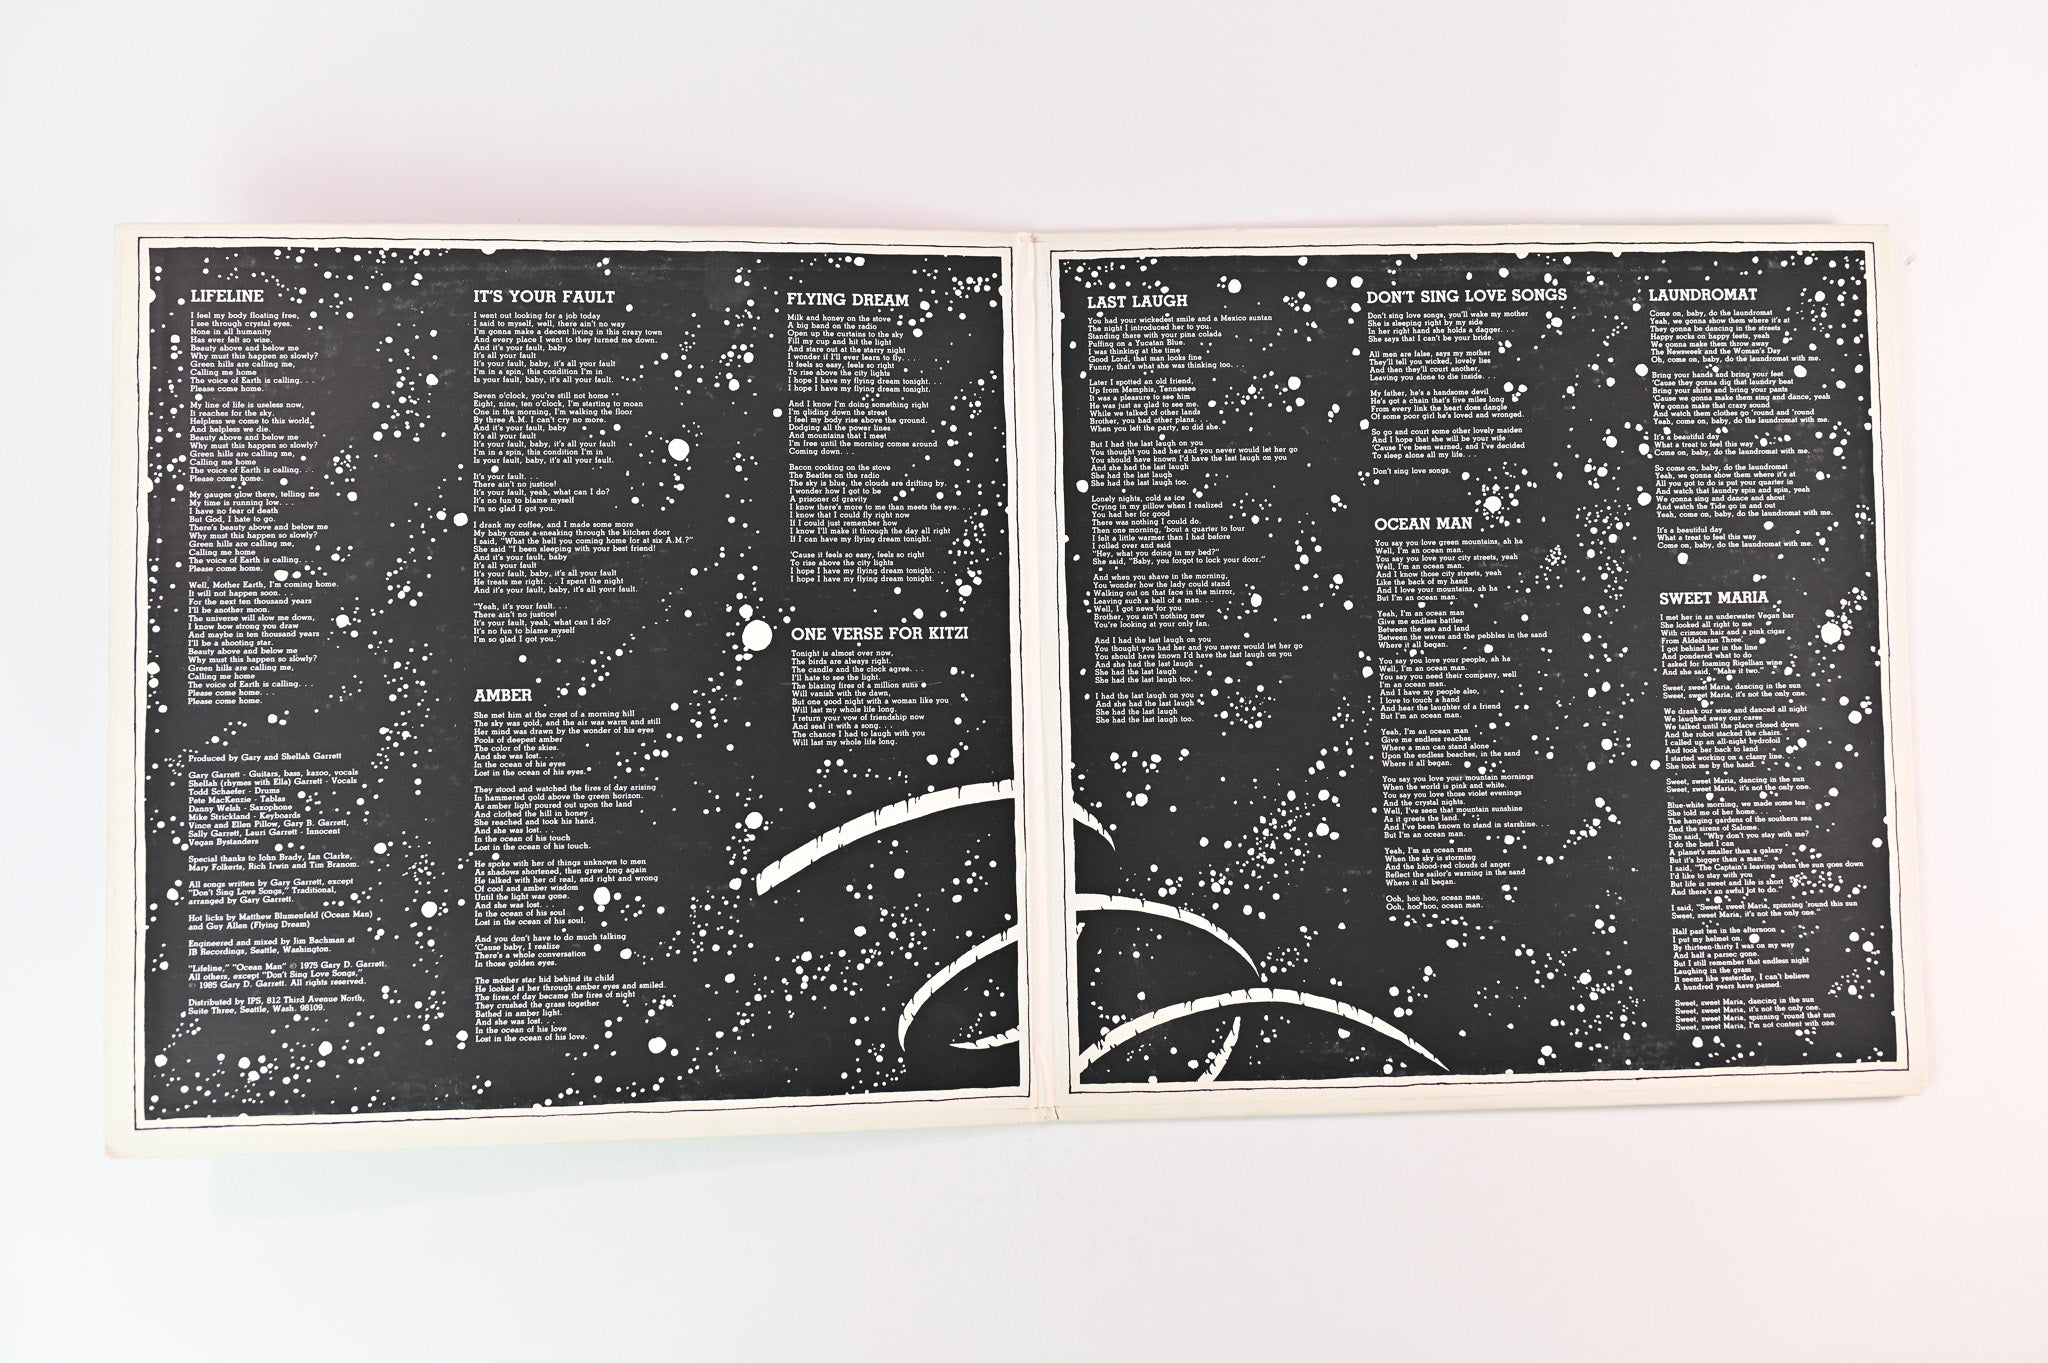 LIFELINE
I feel my body floating free,
I see through crystal eyes.
None in all humanity
Has ever felt so wise.
Beauty above and below me
Why must this happen so slowly?
Green hills are calling me,
Calling me home
The voice of Earth is calling. . .
Please come home.
My line of life is useless now,
It reaches for the sky.
Helpless we come to this world,
And helpless we die.
Beauty above and below me
Why must this happen so slowly?
Green hills are calling me,
Calling me home
The voice of Earth is calling. . .
Please come home.
My gauges glow there, telling me
My time is running low. . .
I have no fear of death
But God, I hate to go.
There's beauty above and below me
Why must this happen so slowly?
Green hills are calling me,
Calling me home
The voice of Earth is calling. . .
Please come home.
Well, Mother Earth, I'm coming home.
It will not happen soon. . .
For the next ten thousand years
I'll be another moon.
The universe will slow me down,
I know how strong you draw
And maybe in ten thousand years
I'll be a shooting star.
Beauty above and below me
Why must this happen so slowly?
Green hills are calling me,
Calling me home
The voice of Earth is calling. . .
Please come home. . .
Please come home.
Produced by Gary and Shellah Garrett
Gary Garrett - Guitars, bass, kazoo, vocals
Shellah (rhymes with Ella) Garrett - Vocals
Todd Schaefer - Drums
Pete MacKenzie - Tablas
Danny Welsh - Saxophone
Mike Strickland - Keyboards
Vince and Ellen Pillow, Gary B. Garrett,
Sally Garrett, Lauri Garrett - Innocent
Vegan Bystanders
Special thanks to John Brady, Ian Clarke,
Mary Folkerts, Rich Irwin and Tim Branom.
All songs written by Gary Garrett, except
"Don't Sing Love Songs," Traditional,
arranged by Gary Garrett.
Hot licks by Matthew Blumenfeld (Ocean Man)
and Guy Allen (Flying Dream)
Engineered and mixed by Jim Bachman at
JB Recordings, Seattle, Washington.
"Lifeline," "Ocean Man" © 1975 Gary D. Garrett.
All others, except "Don't Sing Love Songs,"
© 1985 Gary D. Garrett. All rights reserved.
Distributed by IPS, 812 Third Avenue North,
Suite Three, Seattle, Wash. 98109.
IT'S YOUR FAULT
I went out looking for a job today
I said to myself, well, there ain't no way
I'm gonna make a decent living in this crazy town
And every place I went to they turned me down.
And it's your fault, baby
It's all your fault
It's your fault, baby, it's all your fault
I'm in a spin, this condition I'm in
Is your fault, baby, it's all your fault.
Seven o'clock, you're still not home
Eight, nine, ten o'clock, I'm starting to moan
One in the morning, I'm walking the floor
By three A.M. I can't cry no more.
And it's your fault, baby
It's all your fault
It's your fault, baby, it's all your fault
I'm in a spin, this condition I'm in
Is your fault, baby, it's all your fault.
It's your fault. . .
There ain't no justice!
It's your fault, yeah, what can I do?
It's no fun to blame myself
I'm so glad I got you.
I drank my coffee, and I made some more
My baby come a-sneaking through the kitchen door
I said, "What the hell you coming home for at six A.M.?"
She said "I been sleeping with your best friend!
And it's your fault, baby
It's all your fault
It's your fault, baby, it's all your fault
He treats me right. . . I spent the night
And it's your fault, baby, it's all your fault.
"Yeah, it's your fault. . .
There ain't no justice!
It's your fault, yeah, what can I do?
It's no fun to blame myself
I'm so glad I got you."
AMBER
She met him at the crest of a morning hill
The sky was gold, and the air was warm and still
Her mind was drawn by the wonder of his eyes
Pools of deepest amber
The color of the skies.
And she was lost. . .
In the ocean of his eyes
Lost in the ocean of his eyes.
They stood and watched the fires of day arising
In hammered gold above the green horizon.
As amber light poured out upon the land
And clothed the hill in honey
She reached and took his hand.
And she was lost. . .
In the ocean of his touch
Lost in the ocean of his touch.
He spoke with her of things unknown to men
As shadows shortened, then grew long again
He talked with her of real, and right and wrong
Of cool and amber wisdom
Until the light was gone.
And she was lost. . .
In the ocean of his soul
Lost in the ocean of his soul.
And you don't have to do much talking
'Cause baby, I realize
There's a whole conversation
In those golden eyes.
The mother star hid behind its child
He looked at her through amber eyes and smiled.
The fires of day became the fires of night
They crushed the grass together
Bathed in amber light.
And she was lost. . .
In the ocean of his love
Lost in the ocean of his love.
FLYING DREAM
Milk and honey on the stove
A big band on the radio
Open up the curtains to the sky
Fill my cup and hit the light
And stare out at the starry night
I wonder if I'll ever learn to fly. . .
It feels so easy, feels so right
To rise above the city lights
I hope I have my flying dream tonight. . .
I hope I have my flying dream tonight.
And I know I'm doing something right
I'm gliding down the street
I feel my body rise above the ground.
Dodging all the power lines
And mountains that I meet
I'm free until the morning comes around
Coming down. . .
Bacon cooking on the stove
The Beatles on the radio
The sky is blue, the clouds are drifting by.
I wonder how I got to be
A prisoner of gravity
I know there's more to me than meets the eye. . .
I know that I could fly right now
If I could just remember how
I know I'll make it through the day all right
If I can have my flying dream tonight.
'Cause it feels so easy, feels so right
To rise above the city lights
I hope I have my flying dream tonight. . .
I hope I have my flying dream tonight.
ONE VERSE FOR KITZI
Tonight is almost over now,
The birds are always right.
The candle and the clock agree. . .
I'll hate to see the light.
The blazing fires of a million suns
Will vanish with the dawn,
But one good night with a woman like you
Will last my whole life long.
I return your vow of friendship now
And seal it with a song. . .
The chance I had to laugh with you
Will last my whole life long.
LAST LAUGH
You had your wickedest smile and a Mexico suntan
The night I introduced her to you.
Standing there with your pina colada
Puffing on a Yucatan Blue.
I was thinking at the time
Good Lord, that man looks fine
Funny, that's what she was thinking too. . .
Later I spotted an old friend,
Up from Memphis, Tennessee
It was a pleasure to see him
He was just as glad to see me.
While we talked of other lands
Brother, you had other plans,
When you left the party, so did she.
But I had the last laugh on you
You thought you had her and you never would let her go
You should have known I'd have the last laugh on you
And she had the last laugh
She had the last laugh
She had the last laugh too.
Lonely nights, cold as ice
Crying in my pillow when I realized
You had her for good
There was nothing I could do.
Then one morning, 'bout a quarter to four
I felt a little warmer than I had before
I rolled over and said
"Hey, what you doing in my bed?"
She said, "Baby, you forgot to lock your door."
And when you shave in the morning,
You wonder how the lady could stand
Walking out on that face in the mirror,
Leaving such a hell of a man. . .
Well, I got news for you
Brother, you ain't nothing new
You're looking at your only fan.
And I had the last laugh on you
You thought you had her and you never would let her go
You should have known I'd have the last laugh on you
And she had the last laugh
She had the last laugh
She had the last laugh too.
I had the last laugh on you
And she had the last laugh
She had the last laugh
She had the last laugh too.
DON'T SING LOVE SONGS
Don't sing love songs, you'll wake my mother
She is sleeping right by my side
In her right hand she holds a dagger. . .
She says that I can't be your bride.
All men are false, says my mother
They'll tell you wicked, lovely lies
And then they'll court another,
Leaving you alone to die inside. . .
My father, he's a handsome devil
He's got a chain that's five miles long
From every link the heart does dangle
Of some poor girl he's loved and wronged.
So go and court some other lovely maiden
And I hope that she will be your wife
'Cause I've been warned, and I've decided
To sleep alone all my life. . .
Don't sing love songs.
OCEAN MAN
You say you love green mountains, ah ha
Well, I'm an ocean man.
You say you love your city streets, yeah
Well, I'm an ocean man.
And I know those city streets, yeah
Like the back of my hand
And I love your mountains, ah ha
But I'm an ocean man.
Yeah, I'm an ocean man
Give me endless battles
Between the sea and land
Between the waves and the pebbles in the sand
Where it all began.
You say you love your people, ah ha
Well, I'm an ocean man.
You say you need their company, well
I'm an ocean man.
And I have my people also,
I love to touch a hand
And hear the laughter of a friend
But I'm an ocean man.
Yeah, I'm an ocean man
Give me endless reaches
Where a man can stand alone
Upon the endless beaches, in the sand
Where it all began.
You say you love your mountain mornings
When the world is pink and white.
You say you love those violet evenings
And the crystal nights.
Well, I've seen that mountain sunshine
As it greets the land.
And I've been known to stand in starshine. . .
But I'm an ocean man.
Yeah, I'm an ocean man
When the sky is storming
And the blood-red clouds of anger
Reflect the sailor's warning in the sand
Where it all began.
Ooh, hoo hoo, ocean man.
Ooh, hoo hoo, ocean man.
LAUNDROMAT
Come on, baby, do the laundromat
Yeah, we gonna show them where it's at
They gonna be dancing in the streets
Happy socks on happy feets, yeah
We gonna make them throw away
The Newsweek and the Woman's Day
Oh, come on, baby, do the laundromat with me.
Bring your hands and bring your feet
'Cause they gonna dig that laundry beat
Bring your shirts and bring your pants
'Cause we gonna make them sing and dance, yeah
We gonna make that crazy sound
And watch them clothes go 'round and 'round
Yeah, come on, baby, do the laundromat with me.
It's a beautiful day
What a treat to feel this way
Come on, baby, do the laundromat with me.
So come on, baby, do the laundromat
Yeah, we gonna show them where it's at
All you got to do is put your quarter in
And watch that laundry spin and spin, yeah
We gonna sing and dance and shout
And watch the Tide go in and out
Yeah, come on, baby, do the laundromat with me.
It's a beautiful day
What a treat to feel this way
Come on, baby, do the laundromat with me.
SWEET MARIA
I met her in an underwater Vegan bar
She looked all right to me
With crimson hair and a pink cigar
From Aldebaran Three.
I got behind her in the line
And pondered what to do
I asked for foaming Rigellian wine
And she said, "Make it two."
Sweet, sweet Maria, dancing in the sun
Sweet, sweet Maria, it's not the only one.
We drank our wine and danced all night
We laughed away our cares
We talked until the place closed down
And the robot stacked the chairs.
I called up an all-night hydrofoil
And took her back to land
I started working on a classy line. . .
She took me by the hand.
Sweet, sweet Maria, dancing in the sun
Sweet, sweet Maria, it's not the only one.
Blue-white morning, we made some tea
She told me of her home. . .
The hanging gardens of the southern sea
And the sirens of Salome.
She said, "Why don't you stay with me?
I do the best I can
A planet's smaller than a galaxy
But it's bigger than a man."
I said, "The Captain's leaving when the sun goes down
I'd like to stay with you
But life is sweet and life is short
And there's an awful lot to do."
I said, "Sweet, sweet Maria, spinning 'round this sun
Sweet, sweet Maria, it's not the only one."
Half past ten in the afternoon
I put my helmet on.
By thirteen-thirty I was on my way
And half a parsec gone.
But I still remember that endless night
Laughing in the grass
It seems like yesterday, I can't believe
A hundred years have passed.
Sweet, sweet Maria, dancing in the sun
Sweet, sweet Maria, it's not the only one.
Sweet, sweet Maria, spinning 'round that sun
Sweet, sweet Maria, I'm not content with one.